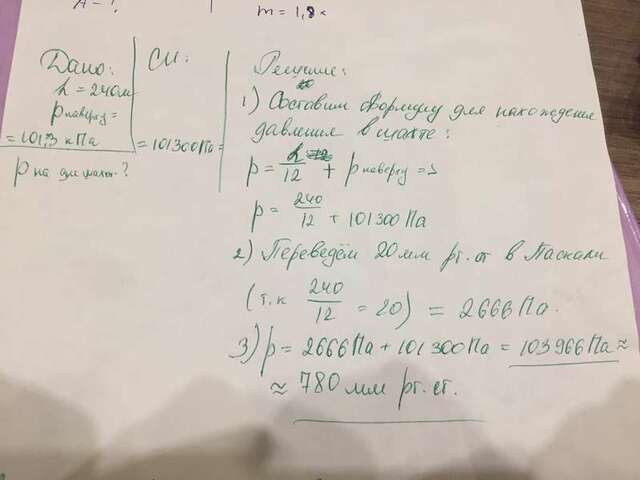 А-?
m = 1,8
Дано:
h = 240м
p наверху =
= 101,3 кПа
p на дне шахт.-?
СИ:
= 101300Па =
Решение:
1) Составим формулу для нахождения
давления в шахте:
p = h/12 + p наверху =>
p = 240/12 + 101300 Па
2) Переведём 20 мм рт. ст в Паскали
(т.к 240/12 = 20) = 2666 Па.
3) p = 2666 Па + 101 300 Па = 103 966 Па ≈
≈ 780 мм рт. ст.